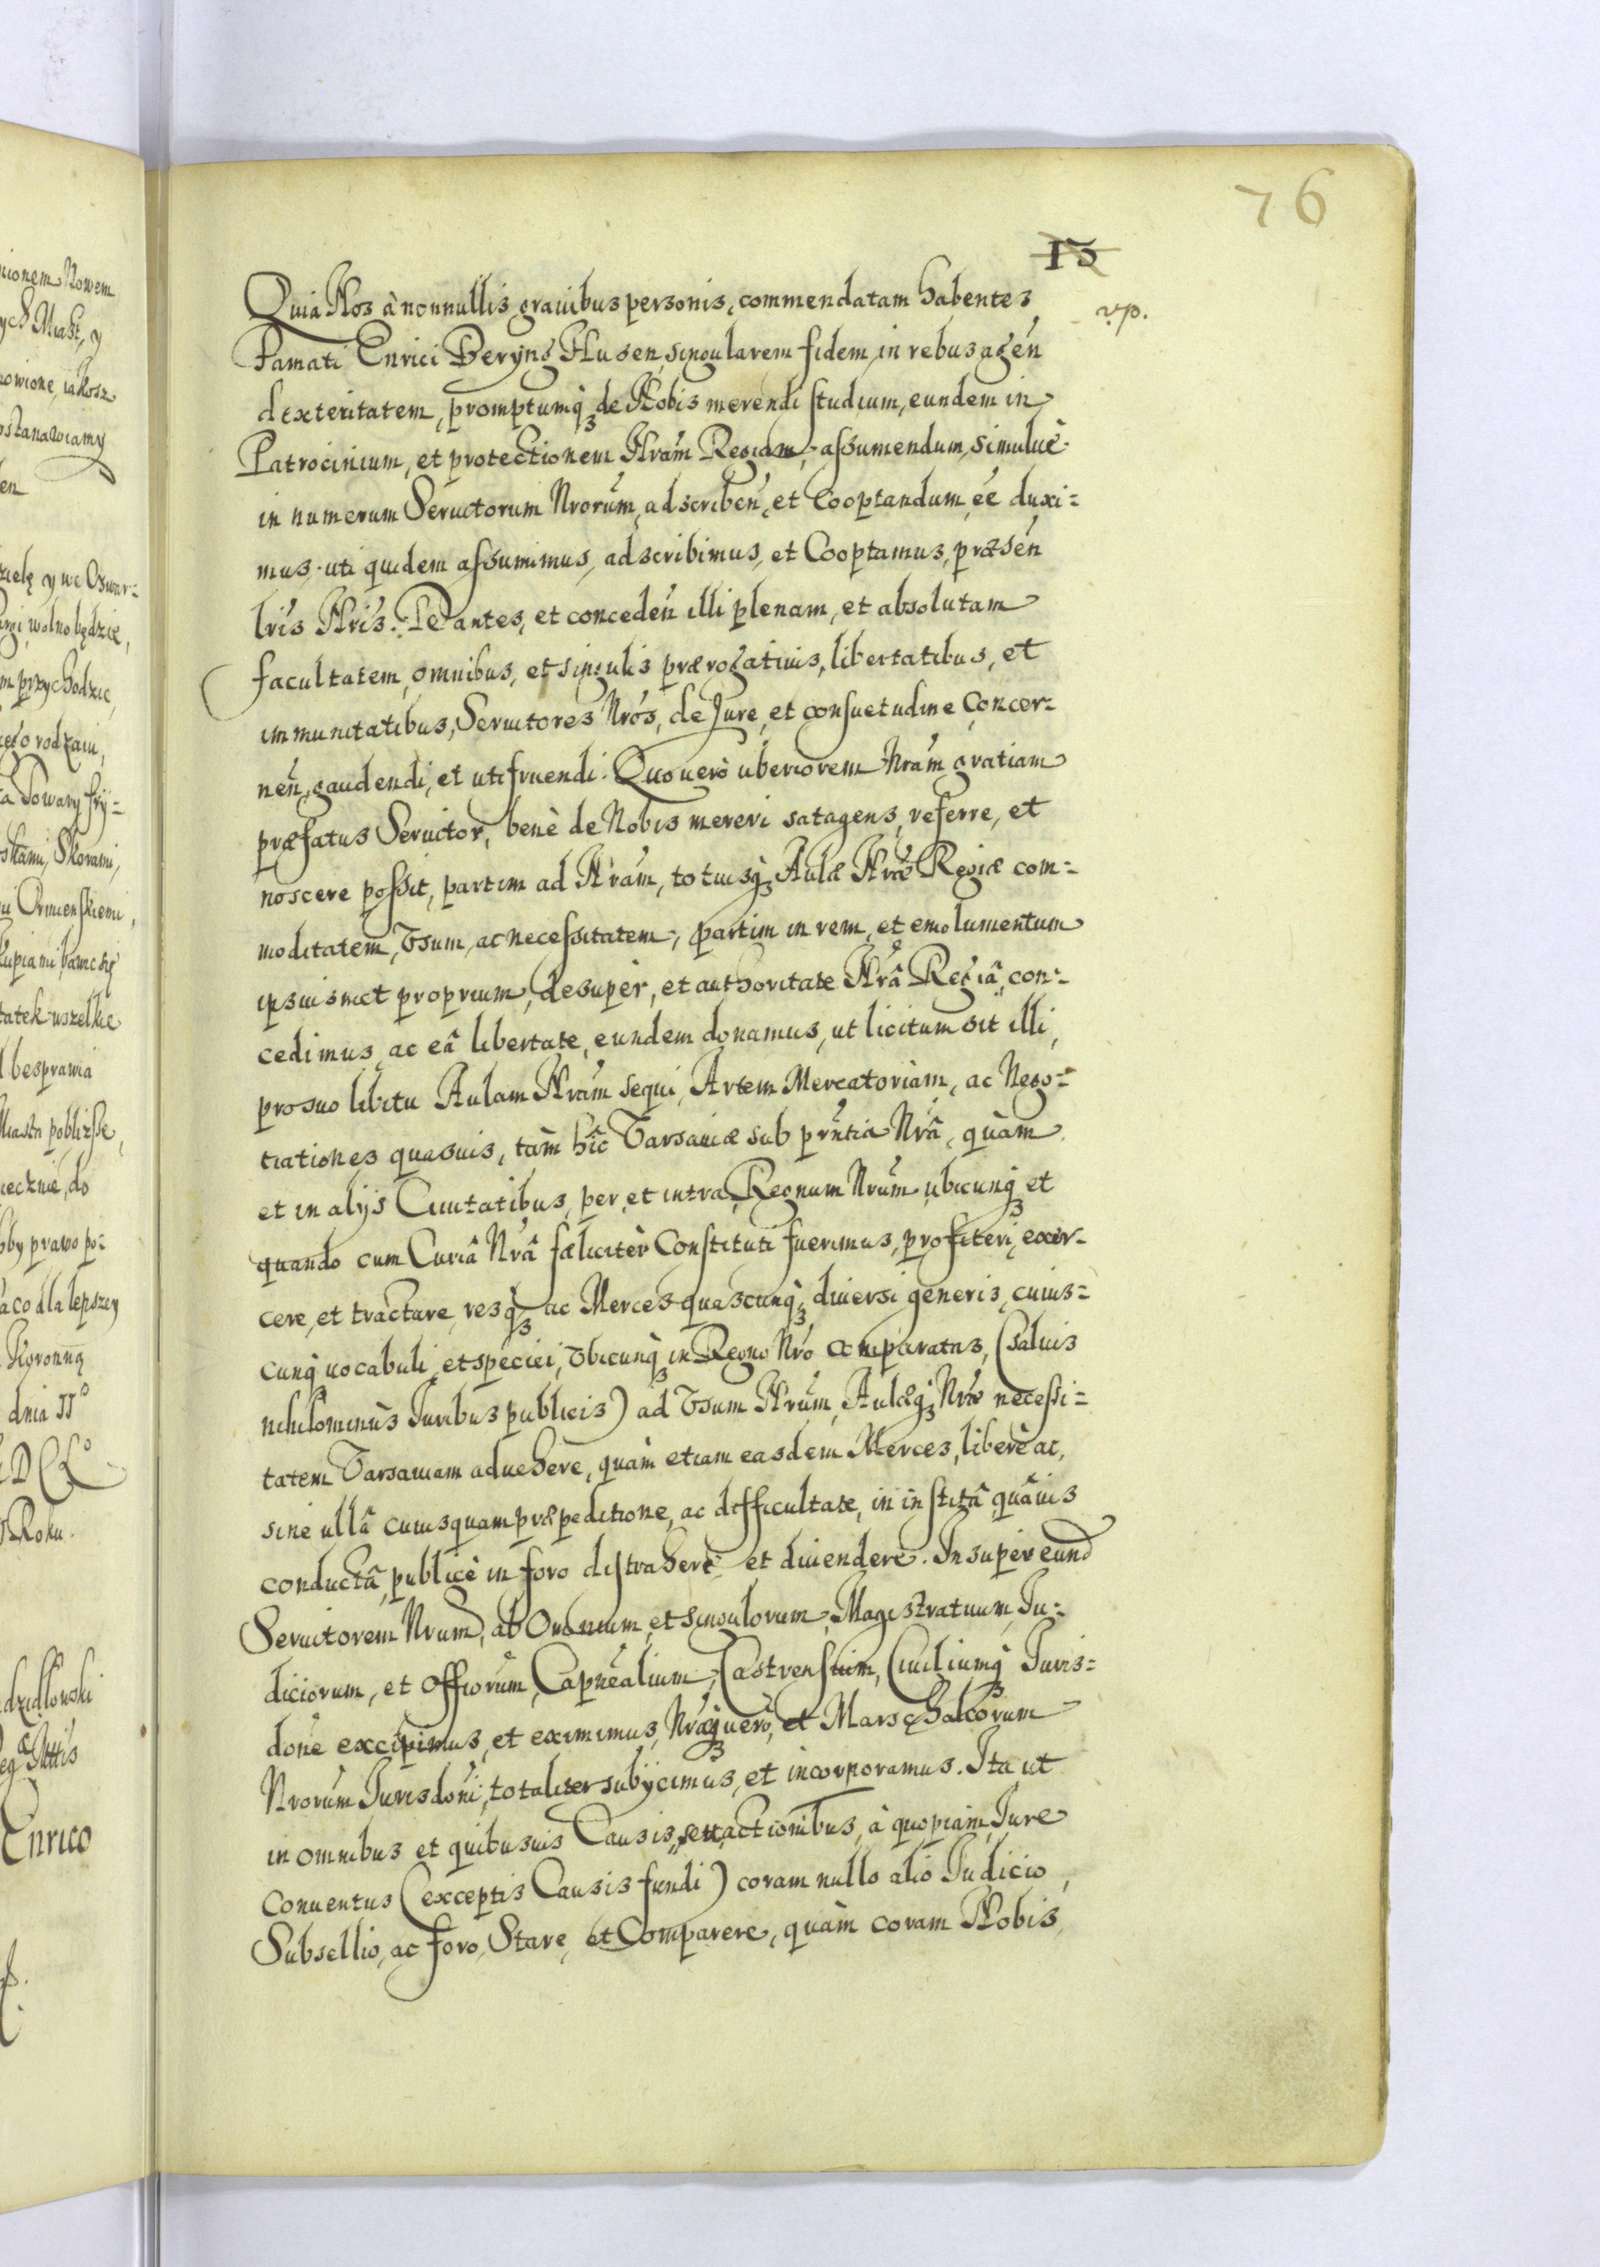 76
13
Quia Nos à nonnullis grauibus personis, commendatam habentes
Famati Enrici Beryng Husen, singularem fidem, in rebus agen̄
dexteritatem, promptumq̢ de Nobis merendi studium, eundem in
Patrocinium, et protectionem Nram̄ Regiam, assumendum, simulue
in numerum Seruitorum Nrorum̄, adscriben̄, et Cooptandum, eē duxi=
mus. uti quidem assumimus, adscribimus, et Cooptamus, præsen̄
lris̄ Nris̄. Dantes, et conceden̄ illi plenam, et absolutam
facultatem, omnibus, et singulis prærogatiuis, libertatibus, et
immunitatibus, Seruitores Nros̄, de Jure, et consuetudine Concer=
nen̄, gaudendi, et utifruendi. Quo uerò uberiorem Nram̄ gratiam
præfatus Seruitor, benè de Nobis mereri satagens, referre, et
noscere possit, partim ad Nram̄, totiusq̢ Aulæ Nrǣ Regiæ com=
moditatem, Vsum, ac necessitatem, partim in rem, et emolumentum
ipsiusmet proprium, desuper, et authoritate Nrâ Regiâ, con=
cedimus, ac eâ libertate, eundem donamus, ut licitum sit illi,
pro suo libitu Aulam Nram̄ sequi, Artem Mercatoriam, ac Nego=
tiationes quasuis, tàm hîc Varsauiæ sub prn̄tia Nrâ, quàm
et in alijs Ciuitatibus, per, et intra Regnum Nrum̄, ubicunq̢ et
quando cum Curiâ Nrâ fæliciter Constituti fuerimus, profiteri, exer=
cere, et tractare, resq̢ ac Merces quascunq̢ diuersi generis, cuius=
cunq̢ uocabuli, et speciei, Vbicunq̢ in Regno Nro̅ comparatas, (saluis
nihilominùs Iuribus publicis) ad Vsum Nrum̄, Aulæq̢ Nrǣ necessi=
tatem Varsauiam aduehere, quàm etiam easdem Merces, liberè ac,
sine ullâ cuiusquam præpeditione, ac difficultate, in institâ quâuis
conductâ, publicè in foro distrahere et diuendere. Insuper eund̄
Seruitorem Nrum̄, ab Omnium, et singulorum, Magistratuum, Iu=
diciorum, et Offiorum̄, Capnealium̄, Castrensium, Ciuiliumq̢ Iuris=
done̅ excipimus, et eximimus, Nraq̢ uerò, et Marschalcorum
Nrorum̄ Iurisdoni̅, totaliter subijcimus, et incorporamus. Ita ut
in omnibus et quibusuis Causis, seu actionibus, à quopiam, Iure
conuentus (exceptis Causis fundi) coram nullo alio Iudicio,
Subsellio, ac foro, Stare, et Comparere, quàm coram Nobis